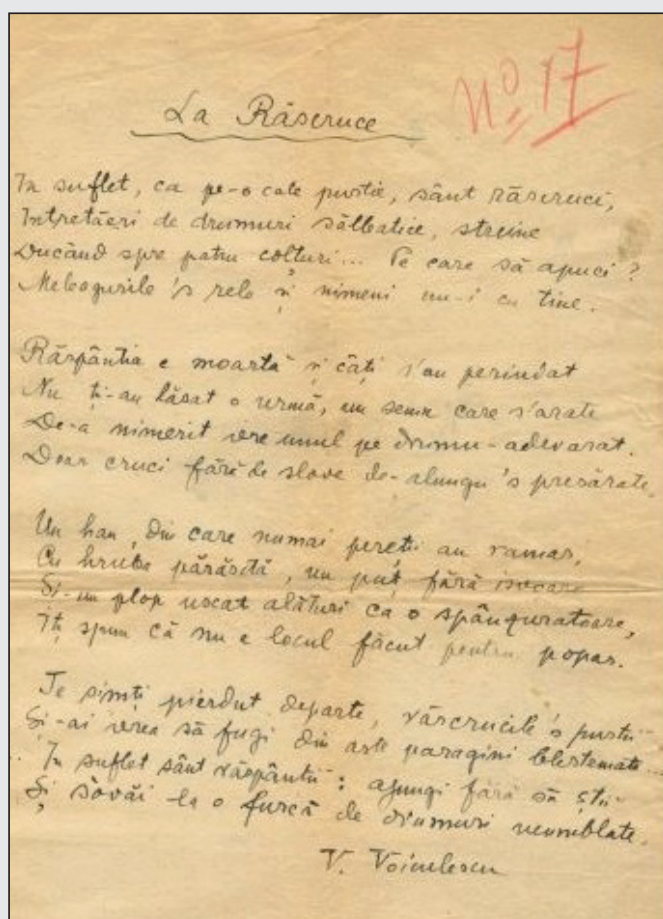 La Răscruce
No 17
In suflet, ca pe-o cale pustie, sânt răscruci,
Intretăeri de drumuri sălbatice, streine
Ducând spre patru colțuri... Pe care să apuci?
Meleagurile 's rele și nimeni nu-i cu tine.
Răspântia e moartă și câți s'au perindat
Nu ți-au lăsat o urmă, un semn care s'arate
De-a nimerit vre unul pe drumu-adevarat.
Doar cruci fără de slove de-alungu 's presărate.
Un han, din care numai pereții au ramas,
Cu hruba părăsită, un puț fără isvoare
Și-un plop uscat alături ca o spânzuratoare,
Iți spun că nu e locul făcut pentru popas.
Te simți pierdut departe, răscrucile 's pustii
Și-ai vrea să fugi din aste paragini blestemate
In suflet sânt răspântii: ajungi fără să știi
Și șovăi la o furcă de drumuri neumblate.
V. Voiculescu